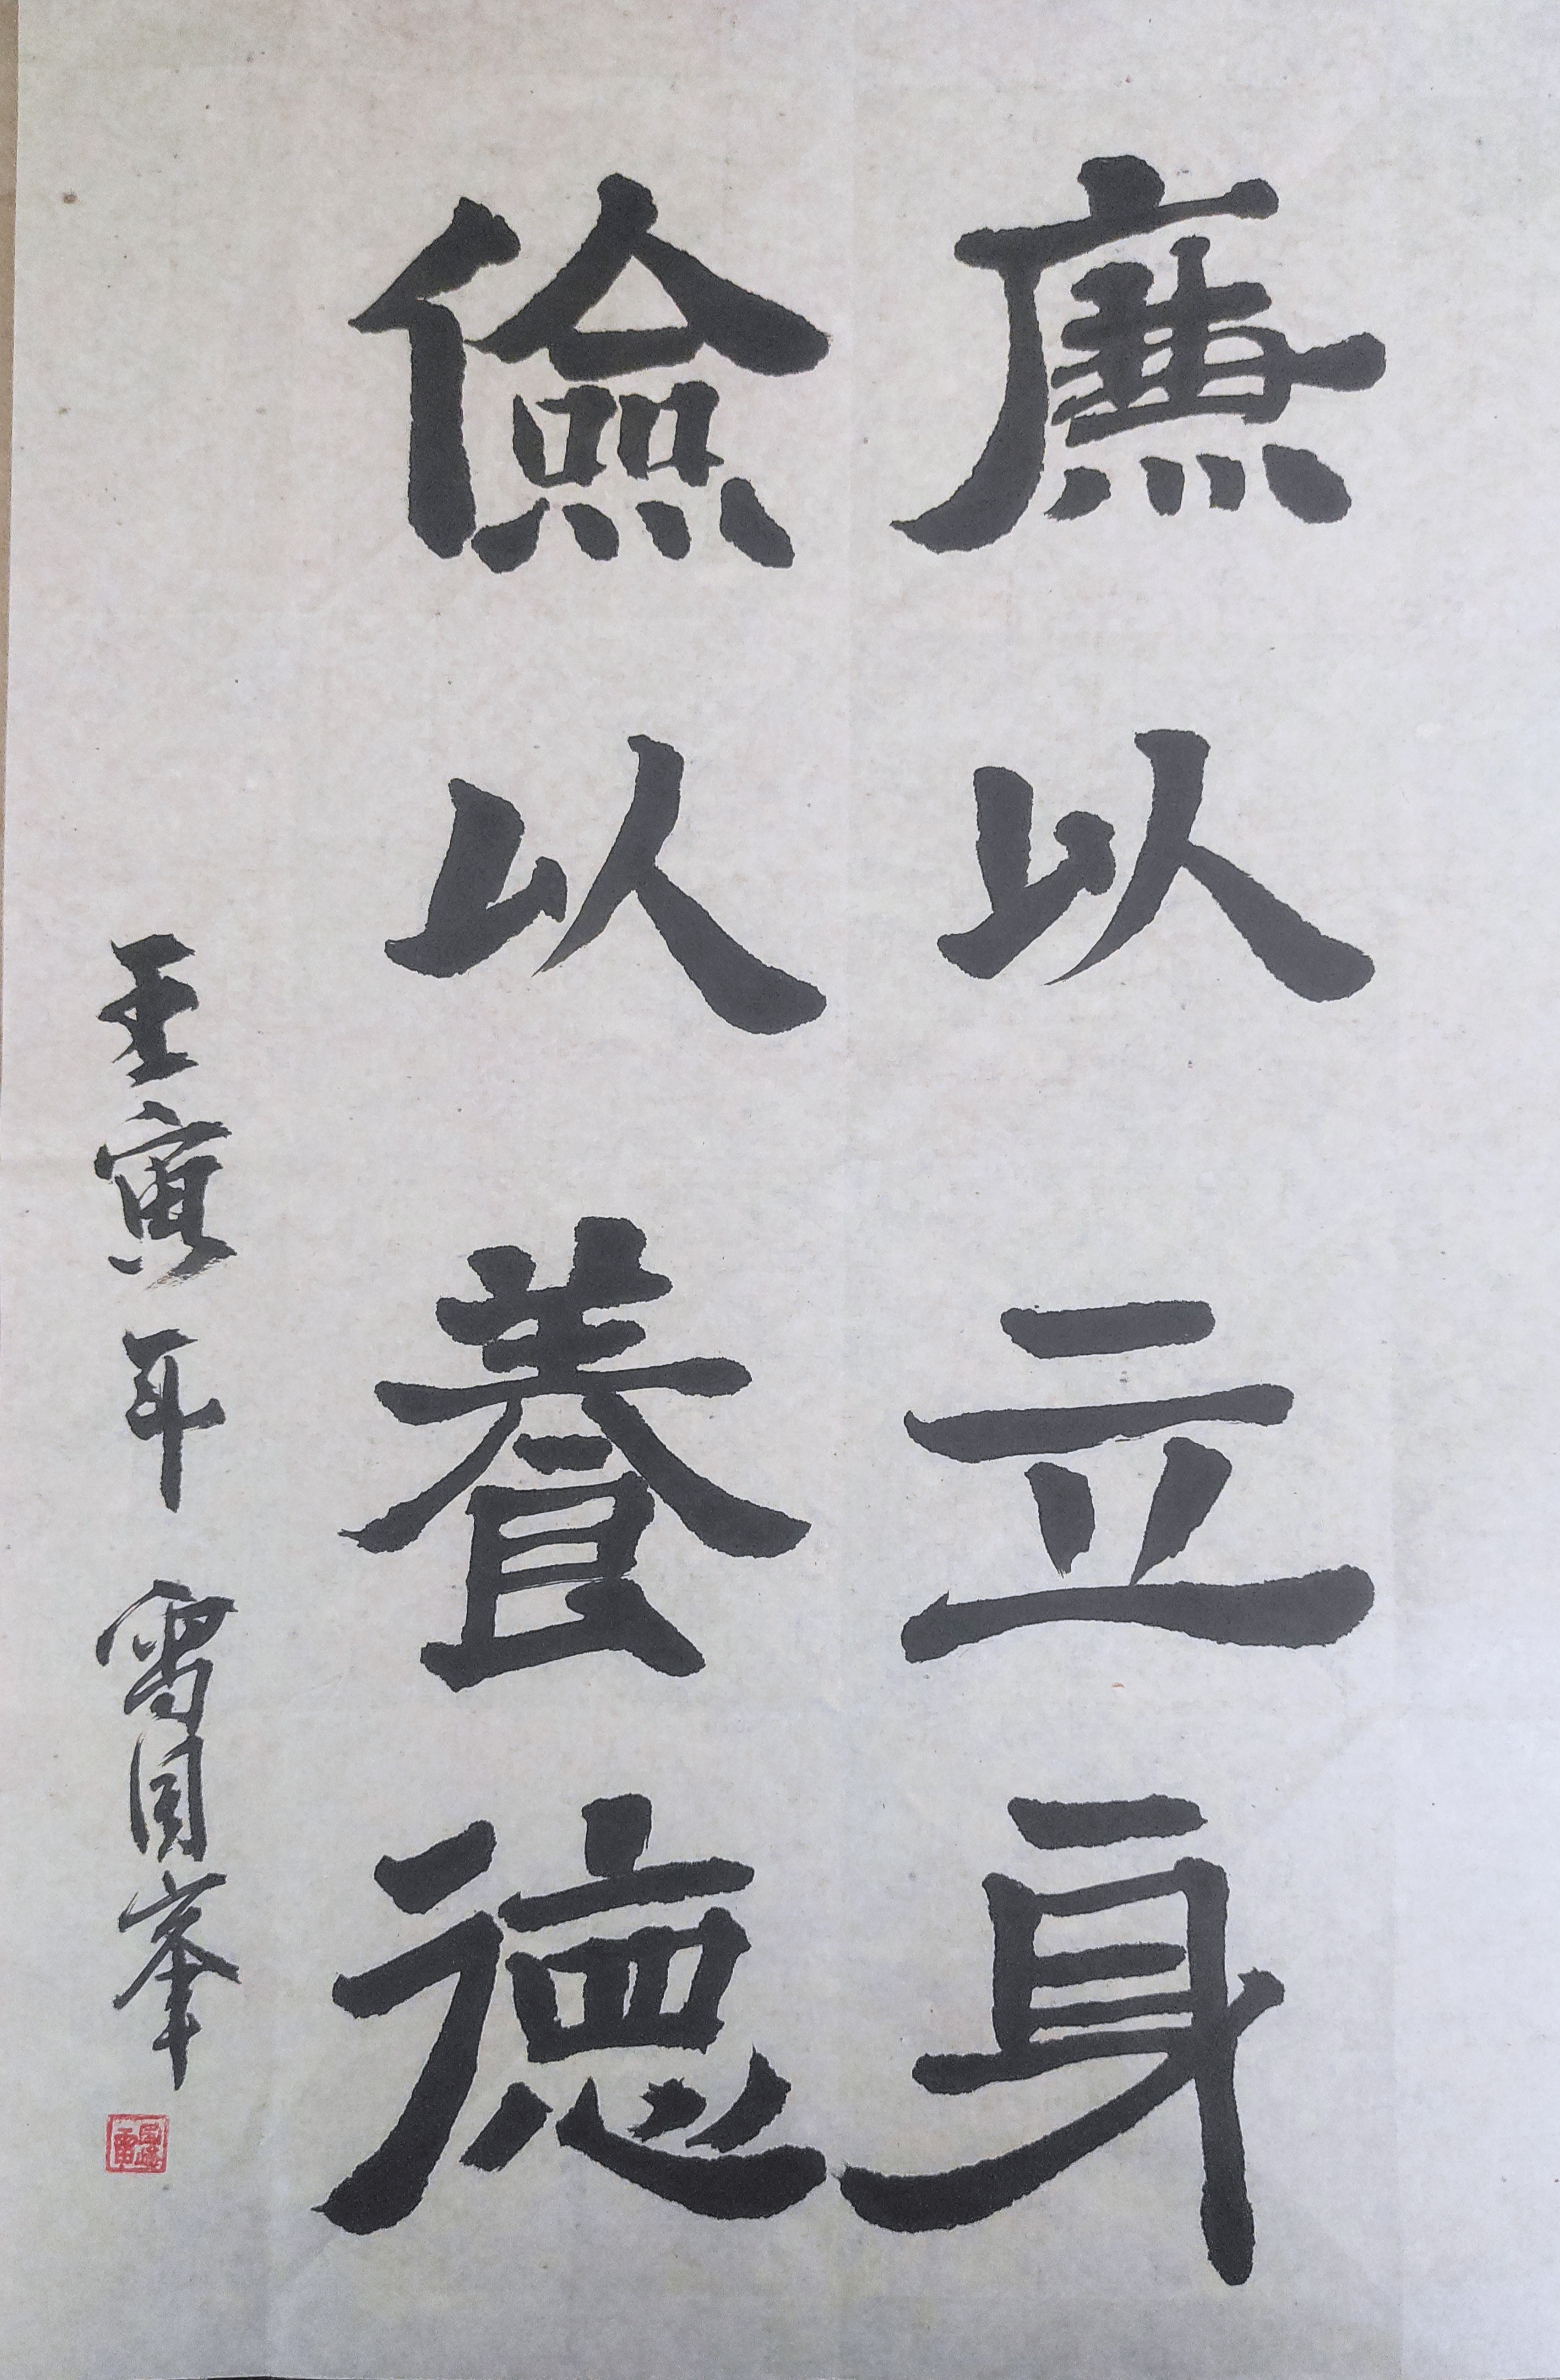 廉以立身
儉以養德
壬寅年 雷国峯